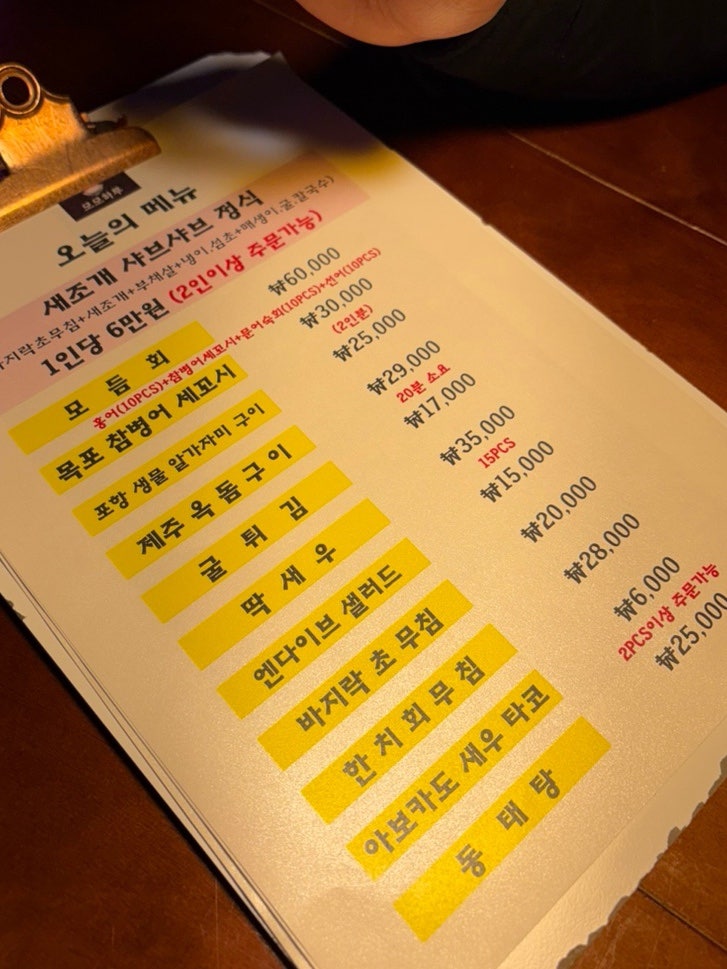 모모하루
오늘의 메뉴
새조개 샤브샤브 정식
바지락초무침+세조개+부채살+냉이.섬초+매생이.굴.칼국수)
1인당 6만원 (2인이상 주문가능)
모 듬 회 ₩60,000
홍어(10PCS)+참병어세꼬시+문어숙회(10PCS)+선어(10PCS)
목포 참병어 세꼬시 ₩30,000
(2인분)
포항 생물 알가자미 구이 ₩25,000
제주옥돔구이 ₩29,000
20분 소요
굴 튀 김 ₩17,000
딱 새 우 ₩35,000
15PCS
엔다이브 샐러드 ₩15,000
바지락 초 무침 ₩20,000
한 치 회 무 침 ₩28,000
아보카도 새우 타코 ₩6,000
2PCS이상 주문가능
동 태 탕 ₩25,000